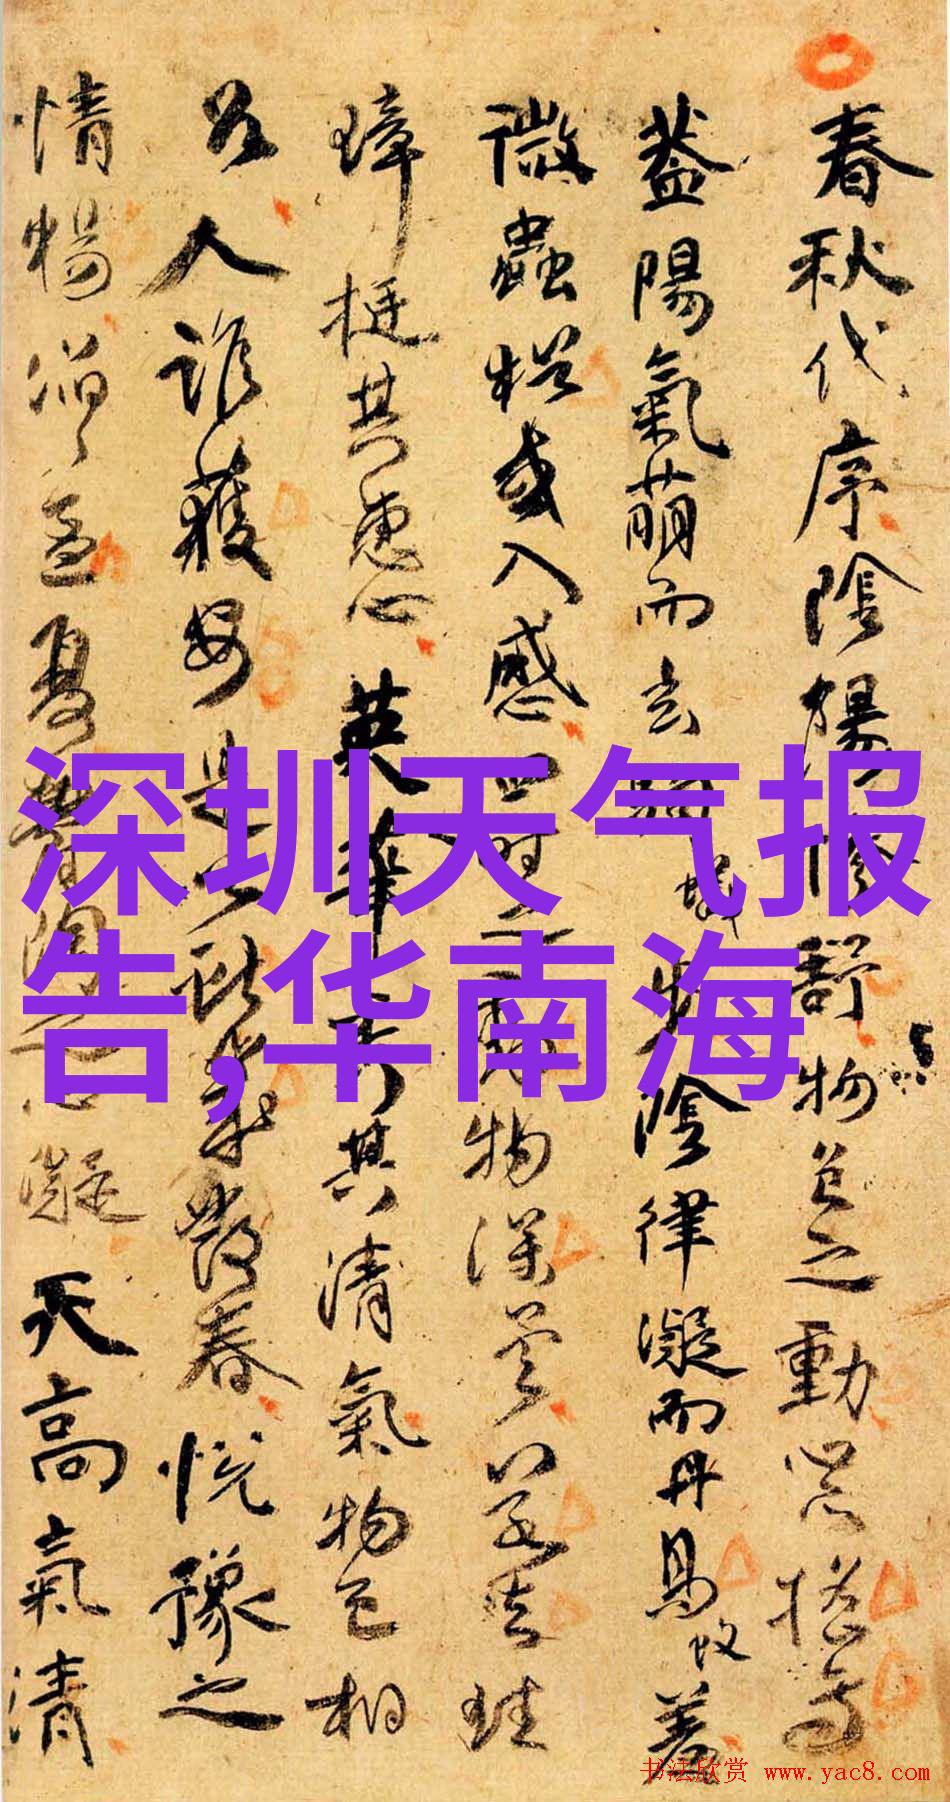 春秋代序陰陽惨舒物色之動心亦搖焉
蓋陽氣萌而玄駒步陰律凝而丹鳥羞
微蟲猶或入感四時之動物深矣若夫珪
璋挺其惠心英華秀其清氣物色相
召人誰獲安是以獻歲發春悅豫之
情暢滔滔孟夏鬱陶之心凝天高氣清
深圳天气报
告,华南海
书法欣赏 www.yac8.com